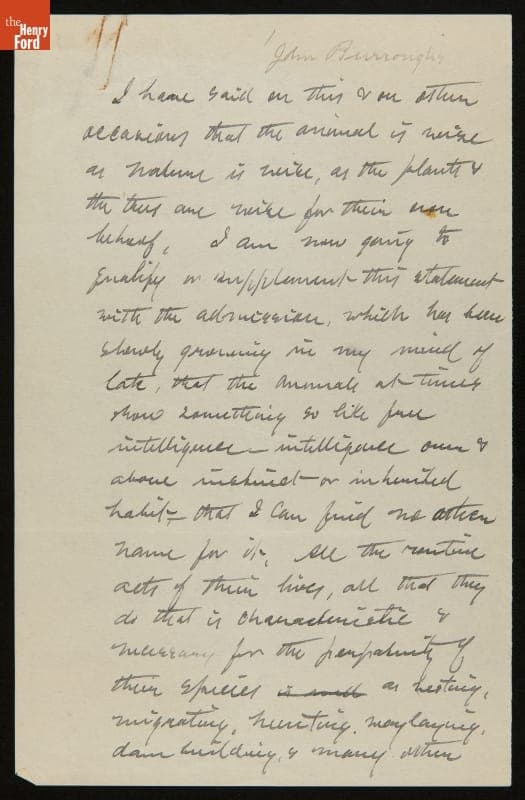 the
Henry
Ford
John Burroughs
I have said on this & on other
occasions that the animal is wise
as nature is wise, as the plants &
the trees are wise for their own
behoof, I am now going to
qualify or supplement this statement
with the admission, which has been
slowly growing in my mind of
late, that the animals at times
show something so like free
intelligence — intelligence over &
above instinct or inherited
habit — that I can find no other
name for it. All the routine
acts of their lives, all that they
do that is characteristic &
necessary for the perpetuity of
their species is and as nesting,
migrating, hunting, waylaying,
dam building, & many other